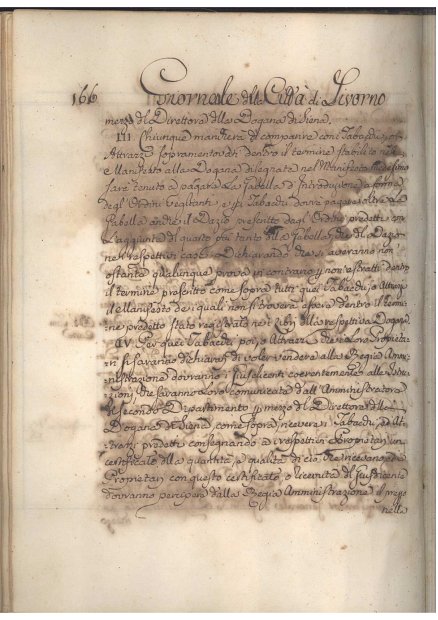 166 Giornale della Città di Livorno
mezzo del Direttore della Dogana di Siena.
III. Chiunque mancherà di comparire con i Tabacchi, o
Attrazzi sopramentovati dentro il termine stabilito nel
e Manifesto alla Dogana disegnata nel Manifesto medesimo
sarà tenuto a pagare La Gabella d'Introduzione a forma
degl'Ordini veglianti, e i Tabacchi dovrà pagare oltre la
Gabella anche il Dazio prescritto dagl'Ordini predetti con
L'aggiunta del quarto più tanto della Gabella, che del Dazio
ne' respettivi casi, Dichiarando che si averanno non
ostante qualunque prova in contrario per non estratti dentro
il termine prescritto come sopra tutti quei Tabacchi, o Attrazzi
del Manifesto de' quali non si troverà essere dentro il termi=
ne predetto stato registrato ne' Libri della respettiva Dogana.
IV. Per quei Tabacchi poi, o Attrazzi che i Loro Proprieta=
rj si saranno dichiarati di voler vendere alla Regia Ammi=
nistrazione dovranno i Giusdicenti coerentemente alle Istru=
zioni, che saranno Loro comunicate dall'Amministratore
del Secondo Dipartimento per mezzo del Direttore della
Dogana di Siena, come sopra, ricevere i Tabacchi, ed At=
trazzi predetti consegnando ai respettivi Proprietarj un
certificato della quantità, e qualità di ciò che riceveranno, ed i
Proprietarj con questo certificato, o ricevuta del Giusdicente
dovranno percipere dalla Regia Amministrazione il prezzo
nella